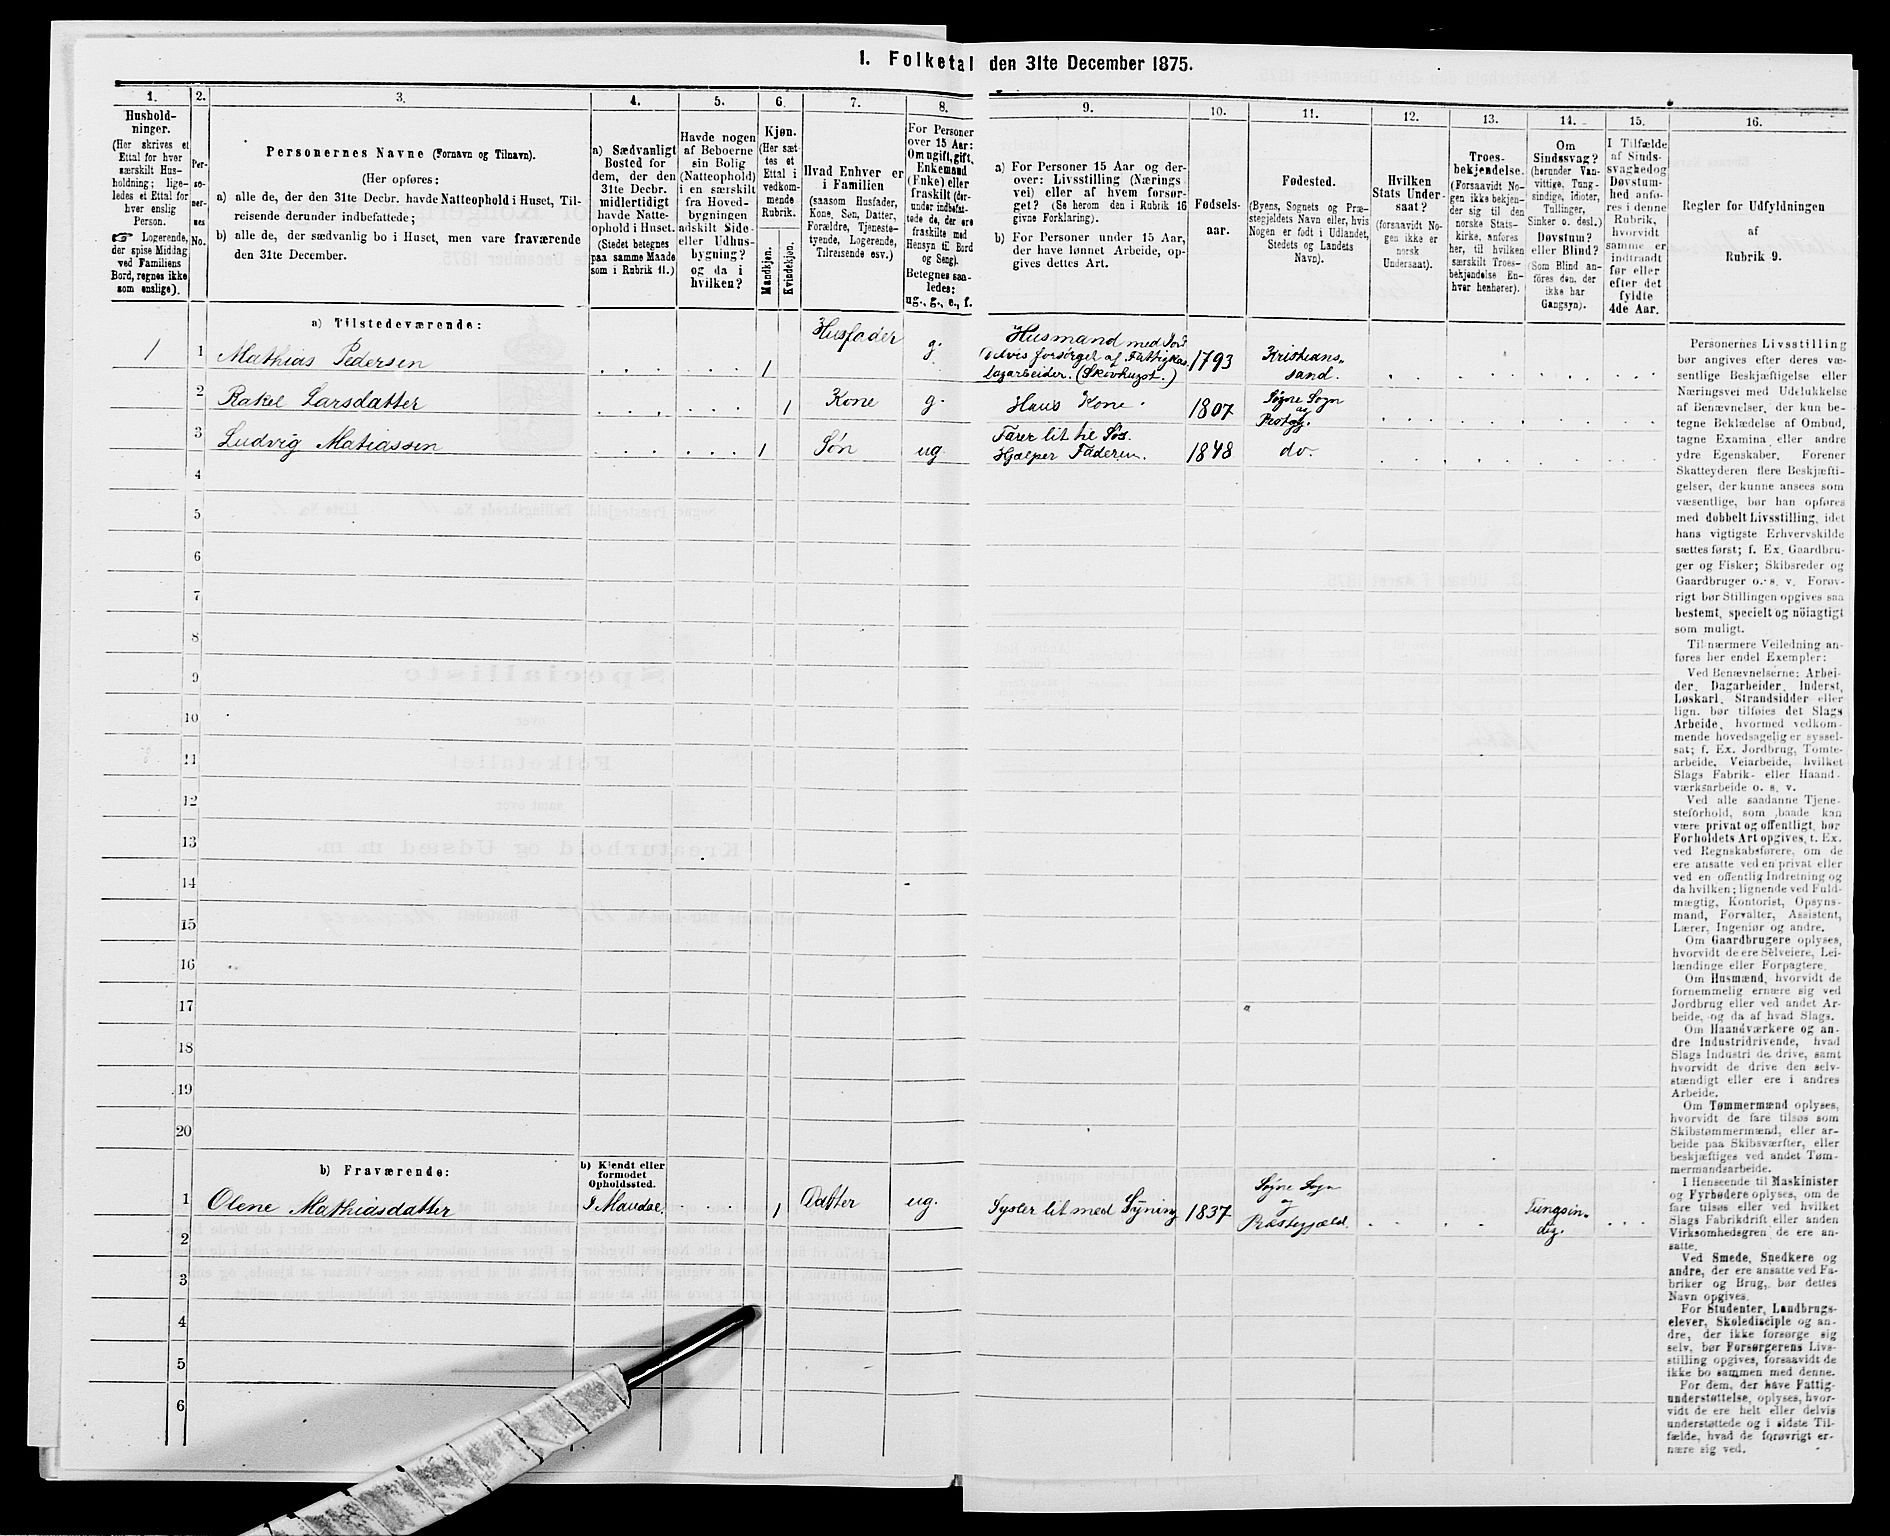 1. Folketal den 31te December 1875.
1.
Hushold-
ninger.
(Her skrives et
Ettal for hver
særskilt Hus-
holdning; lige-
ledes et Ettal for
hver enslig
Person.
☞ Logerende,
der spise Middag
ved Familiens
Bord, regnes ikke
som enslige).
2.
Per-
so-
ner-
nes
No.
3.
Personernes Navne (Fornavn og Tilnavn).
(Her opføres:
a) alle de, der den 31te Decbr. havde Natteophold i Huset, Til-
reisende derunder indbefattede;
b) alle de, der sædvanlig bo i Huset, men vare fraværende
den 31te December.
4.
a) Sædvanligt
Bosted for
dem, der den
31te Decbr.
midlertidigt
havde Natte-
ophold i Huset.
(Stedet betegnes
paa samme Maade
som i Rubrik 11.)
5.
Havde nogen
af Beboerne
sin Bolig
(Natteophold)
i en særskilt
fra Hoved-
bygningen
adskilt Side-
eller Udhus-
bygning?
og da i
hvilken?
6.
Kjøn.
(Her sæt
tes et
Ettal i
vedkom-
mende
Rubrik.
Mandkjøn.
Kvindekjøn.
7.
Hvad Enhver er
i Familien
(saasom Husfader,
Kone, Søn, Datter,
Forældre, Tjeneste-
tyende, Logerende,
Tilreisende osv.)
8.
For Personer
over 15 Aar:
Om ugift, gift,
Enkemand
(Enke) eller
fraskilt (der-
under indbefat-
tede de, der ere
fraskilte med
Hensyn til Bord
og Seng).
Betegnes saa-
ledes:
ug., g., e., f.
9.
a) For Personer 15 Aar og der-
over: Livsstilling (Nærings
vei) eller af hvem forsør-
get? (Se herom den i Rubrik 16
givne Forklaring).
b) For Personer under 15 Aar,
der have lønnet Arbeide, op-
gives dettes Art.
10.
Fødsels-
aar.
11.
Fødested.
(Byens, Sognets og Præ-
stegjeldets Navn eller, hvis
Nogen er født i Udlandet,
Stedets og Landets
Navn).
12.
Hvilken
Stats Under-
saat?
(forsaavidt No-
gen ikke er
norsk
Undersaat).
13.
Troes-
bekjendelse.
(Forsaavidt No-
gen ikke bekjen-
der sig til den
norske Stats-
kirke, anføres
her, til hvilken
særskilt Troes-
bekjendelse En-
hver henhører).
14.
Om
Sindssvag?
(herunder Van-
vittige, Tung-
sindige, Idioter,
Tullinger,
Sinker o. desl.)
Døvstum?
eller Blind?
(Som Blind an-
føres den, der
ikke har
Gangsyn).
15.
I Tilfælde
af Sinds-
svaghed og
Døvstum-
hed anfø-
res i denne
Rubrik,
hvorvidt
samme er
indtraadt
før eller
efter det
fyldte
4de Aar.
16.
Regler for Udfyldningen
af
Rubrik 9.
a) Tilstedeværende:
1 1 Mathias Pedersen 1 Husfader g. Husmand med Jord
Delvis forsørget af Fattigkas.
Dagarbeider. (Skovhugst.) 1793 Kristians-
sand.
2 Rakel Larsdatter 1 Kone g. Hans Kone. 1807 Søgne Sogn
og
Prstgj.
3 Ludvig Matiassen 1 Søn ug Farer lit til Søs.
Hjælper Faderen. 1848 do.
4
5
6
7
8
9
10
11
12
13
14
15
16
17
18
19
20
b) Fraværende:
b) Kjendt eller
formodet
Opholdssted.
1 Olene Mathiasdatter I Mandal. 1 Datter ug. Sysler lit med Syning 1837 Søgne Sogn
og
Præstegjæld. Tungsin-
dig.
2
3
4
5
6
Personernes Livsstilling
bør angives efter deres væ-
sentlige Beskjæftigelse eller
Næringsvei med Udelukkelse
af Benævnelser, der kun be-
tegne Beklædelse af Ombud,
tagne Examina eller andre
ydre Egenskaber. Forener
Skatteyderen flere Beskjæfti-
gelser, der kunne ansees som
væsentlige, bør han opføres
med dobbelt Livsstilling, idet
hans vigtigste Erhvervskilde
sættes først; f. Ex. Gaardbru-
ger og Fisker; Skibsreder og
Gaardbruger o. s. v. Forøv-
rigt bør Stillingen opgives saa
bestemt, specielt og nöiagtigt
som muligt.
Til nærmere Veiledning an-
føres her endel Exempler:
Ved Benævnelserne: Arbei-
der, Dagarbeider, Inderst,
Løskarl, Strandsidder eller
lign. bør tilføies det Slags
Arbeide, hvormed vedkom-
mende hovedsagelig er syssel-
sat; f. Ex. Jordbrug, Tomte-
arbeide, Veiarbeide, hvilket
Slags Fabrik- eller Haand-
værksarbeide o. s. v.
Ved alle saadanne Tjene-
steforhold, som baade kan
være privat og offentligt, bør
Forholdets Art opgives, t. Ex.
ved Regnskabsførere, om de
ere ansatte ved en privat eller
ved en offentlig Indretning og
da hvilken; lignende ved Fuld-
mægtig, Kontorist, Opsyns-
mand, Forvalter, Assistent,
Lærer, Ingeniør og andre.
Om Gaardbrugere oplyses,
hvorvidt de ere Selveiere, Lei-
lændinge eller Forpagtere.
Om Husmænd, hvorvidt de
fornemmelig ernære sig ved
Jordbrug eller ved andet Ar-
beide, og da af hvad Slags.
Om Haandværkere og an-
dre Industridrivende, hvad
Slags Industri de drive, samt
hvorvidt de drive den selv-
stændigt eller ere i andres
Arbeide.
Om Tømmermænd oplyses,
hvorvidt de fare tilsøs som
Skibstømmermænd, eller ar-
beide paa Skibsværfter, eller
beskjæftiges ved andet Tøm-
mermandsarbeide.
I Henseende til Maskinister
og Fyrbødere oplyses, om de
fare tilsøs eller ved hvilket
Slags Fabrikdrift eller anden
Virksomhedsgren de ere an-
satte.
Ved Smede, Snedkere og
andre, der ere ansatte ved Fa-
briker og Brug, bør dettes
Navn opgives.
For Studenter, Landbrugs-
elever, Skoledisciple og an-
dre, der ikke forsørge sig
selv, bør Forsørgerens Livs-
stilling opgives, forsaavidt de
ikke bo sammen med denne.
For dem, der have Fattig-
understøttelse, oplyses, hvor-
vidt de ere helt eller delvis
understøttede og i sidste Til-
fælde, hvad de forøvrigt er-
nære sig ved.